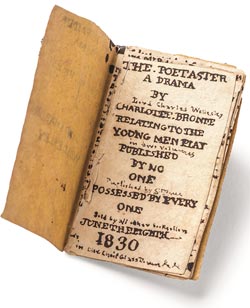 THE POETASTER
A DRAMA
BY
Lord Charles Wellesley
CHARLOTTE BRONTE
RELATING TO THE
YOUNG MEN PLAY
in two volumes
PUBLISHED
BY NO
ONE
Published by
POSSESSED BY EVERY
ONE
Sold by all other booksellers
JUNE THE EIGHTH
1830